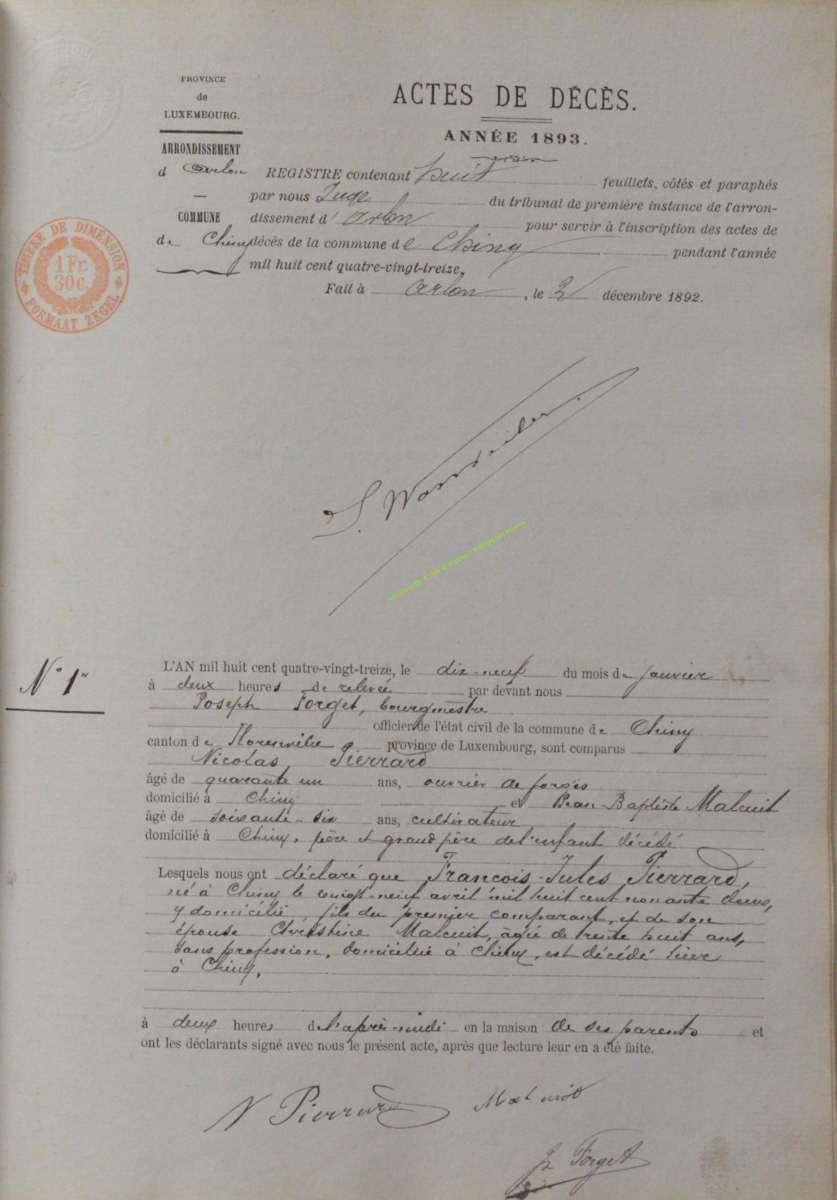 PROVINCE
de
LUXEMBOURG.
ARRONDISSEMENT
d Arlon
COMMUNE
de Chiny
TIMBRE DE DIMENSION
1 Fr.
30 c.
FORMAAT ZEGEL
ACTES DE DÉCÈS.
ANNÉE 1893.
REGISTRE contenant huit feuillets, côtés et paraphés
par nous Juge du tribunal de première instance de l'arron-
dissement d'Arlon pour servir à l'inscription des actes de
décès de la commune de Chiny pendant l'année
mil huit cent quatre-vingt-treize,
Fait à Arlon, le 2 décembre 1892.
N° 1er
L'AN mil huit cent quatre-vingt-treize, le dix-neuf du mois de janvier
à deux heures de relevée par devant nous
Joseph Forget, bourgmestre
officier de l'état civil de la commune de Chiny
canton de Florenville province de Luxembourg, sont comparus
Nicolas Pierrard
âgé de quarante un ans, ouvrier de forges
domicilié à Chiny et Jean-Baptiste Malcuit
âgé de soixante-six ans, cultivateur
domicilié à Chiny, père et grand père de l'enfant décédé
Lesquels nous ont déclaré que François-Jules Pierrard,
né à Chiny le vingt-neuf avril mil huit cent nonante deux,
y domicilié, fils du premier comparant, et de son
épouse Christine Malcuit, âgée de trente huit ans,
sans profession, domiciliée à Chiny, est décédé hier
à Chiny,
à deux heures de l'après-midi en la maison de ses parents et
ont les déclarants signé avec nous le présent acte, après que lecture leur en a été faite.
N Pierrard Malcuit
J. Forget